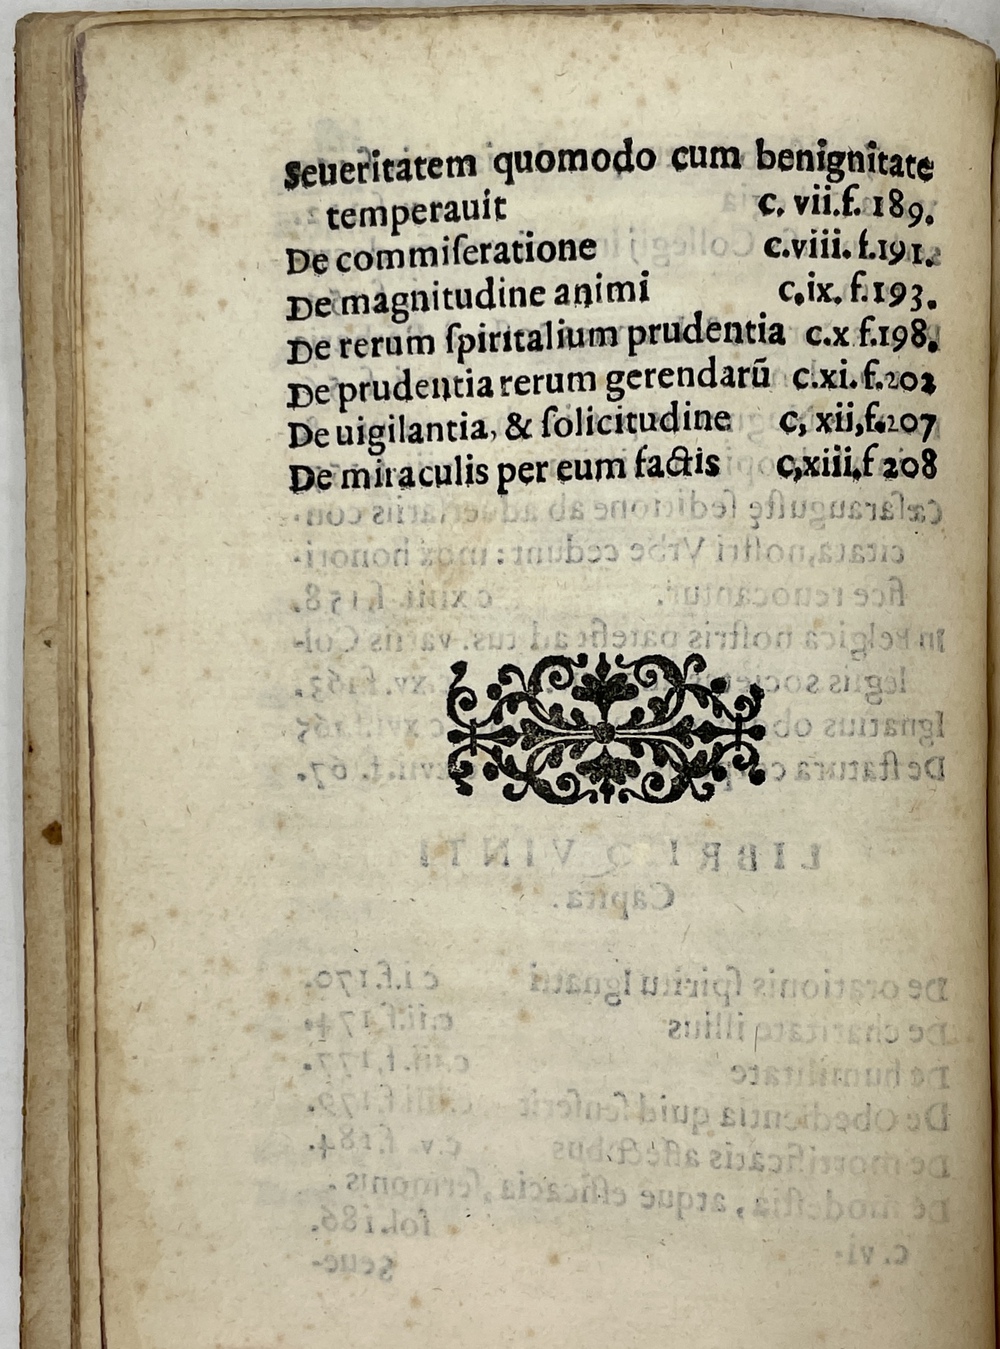 Seueritatem quomodo cum benignitate
temperauit c. vii.f. 189.
De commiſeratione c.viii. f.191.
De magnitudine animi c.ix. f.193.
De rerum ſpiritalium prudentia c.x f.198.
De prudentia rerum gerendarũ c.xi. f.202
De uigilantia, & ſolicitudine c, xii,f.207
De miraculis per eum factis c,xiii,f 208